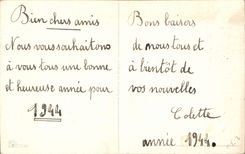 Bien chers amis
Nous vous souhaitons
à vous tous une bonne
et heureuse année pour
1944
Bons baisers
de nous tous et
à bientôt de
vos nouvelles
Colette
année 1944.